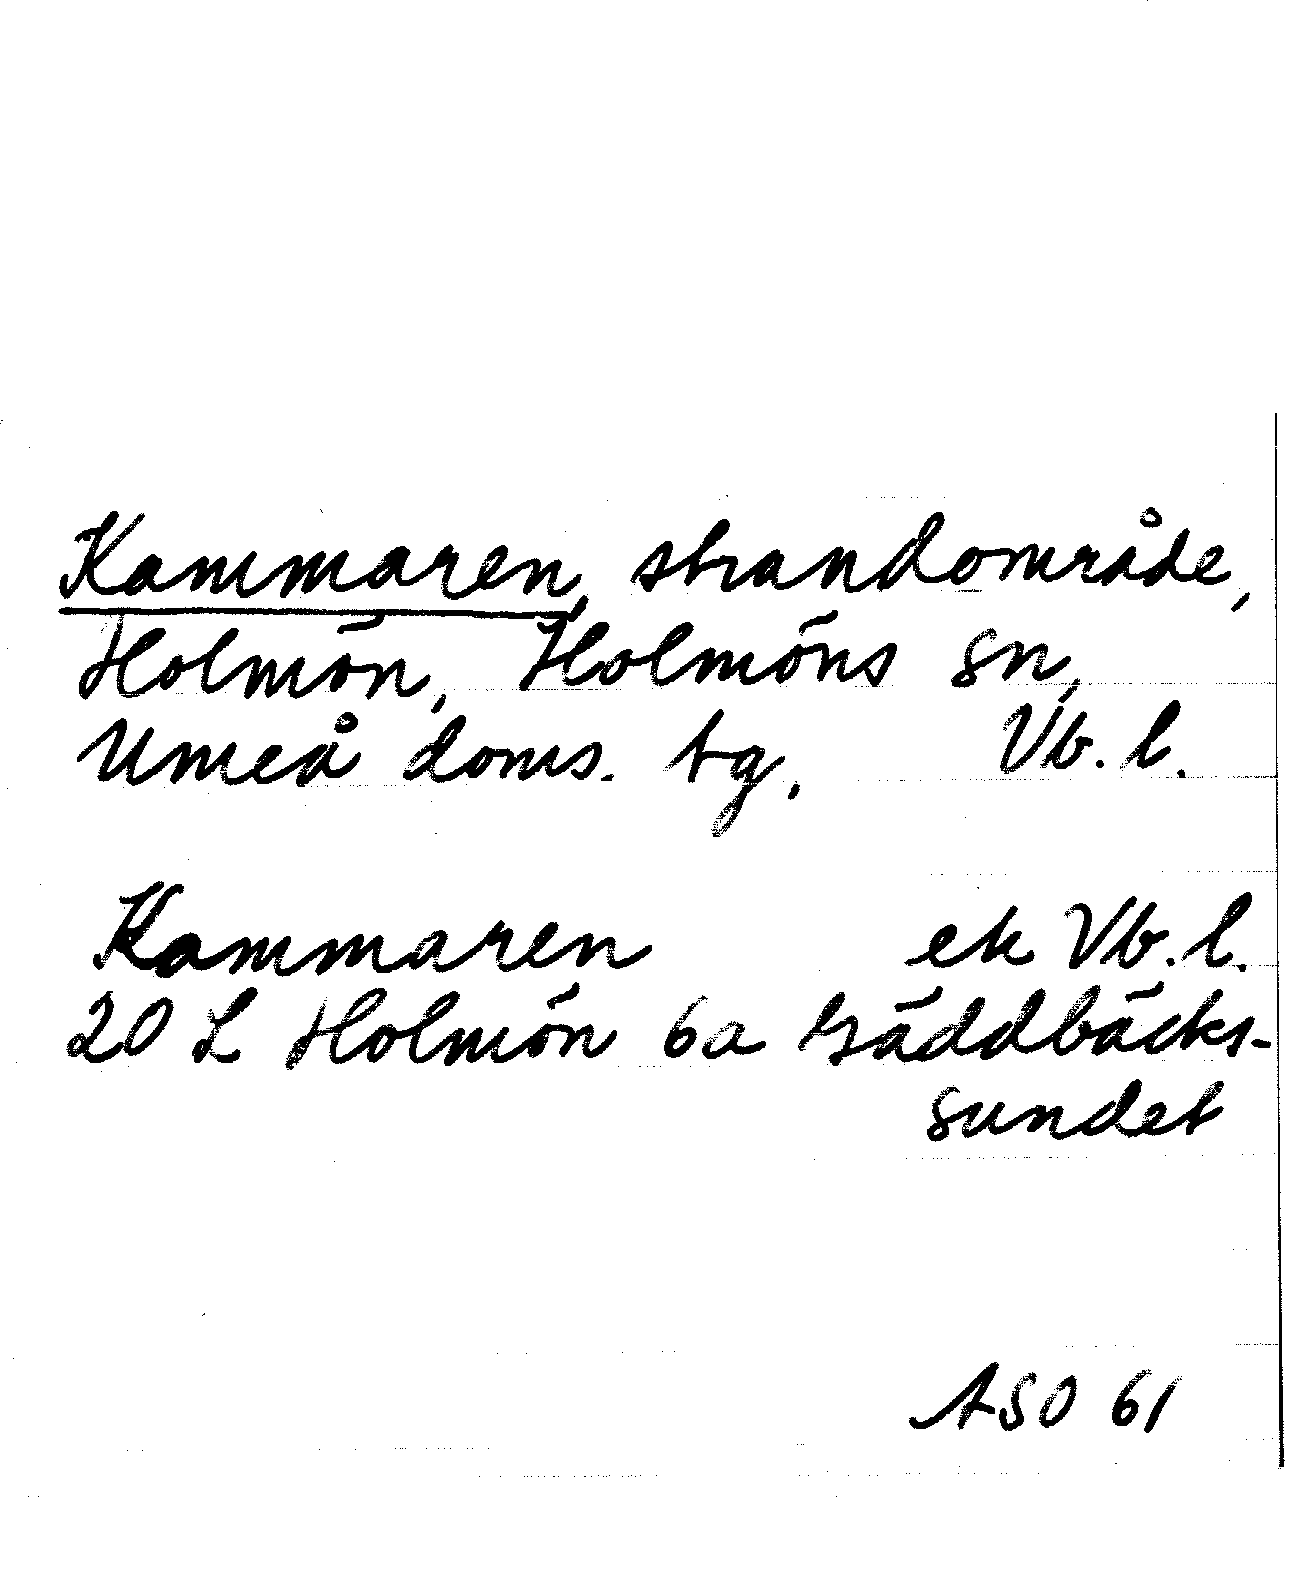 Kammaren, strandområde,
Holmön, Holmöns sn,
Umeå doms. tg, Vb. l.
Kammaren ek Vb. l.
20 L Holmön 6a Gäddbäcks-
sundet
ASO 61